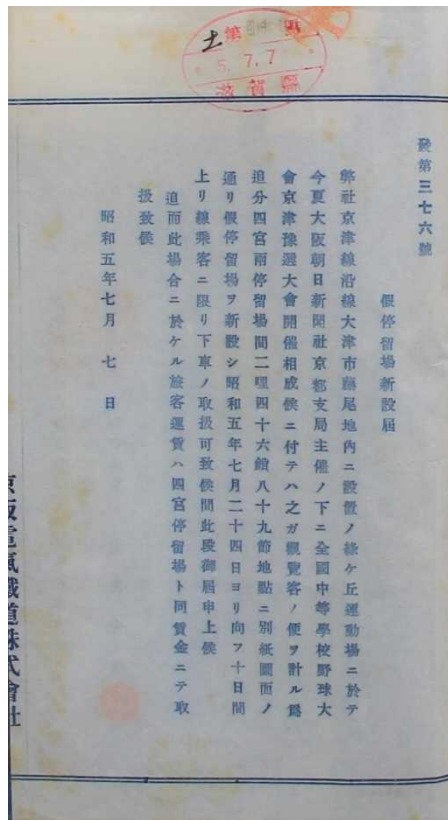 土第 號
5.7.7
滋賀縣
發第三七六號
假停留場新設届
弊社京津線沿線大津市藤尾地内ニ設置ノ緑ケ丘運動場ニ於テ
今夏大阪朝日新聞社京都支局主催ノ下ニ全國中等學校野球大
會京津豫選大會開催相成候ニ付テハ之ガ觀覽客ノ便ヲ計ル爲
追分四宮兩停留場間二哩四十六鎖八十九節地點ニ別紙圖面ノ
通リ假停留場ヲ新設シ昭和五年七月二十四日ヨリ向フ十日間
上リ線乘客ニ限リ下車ノ取扱可致候間此段御届申上候
追而此場合ニ於ケル旅客運賃ハ四宮停留場ト同賃金ニテ取
扱致候
昭和五年七月七日
京阪電氣鐵道株式會社